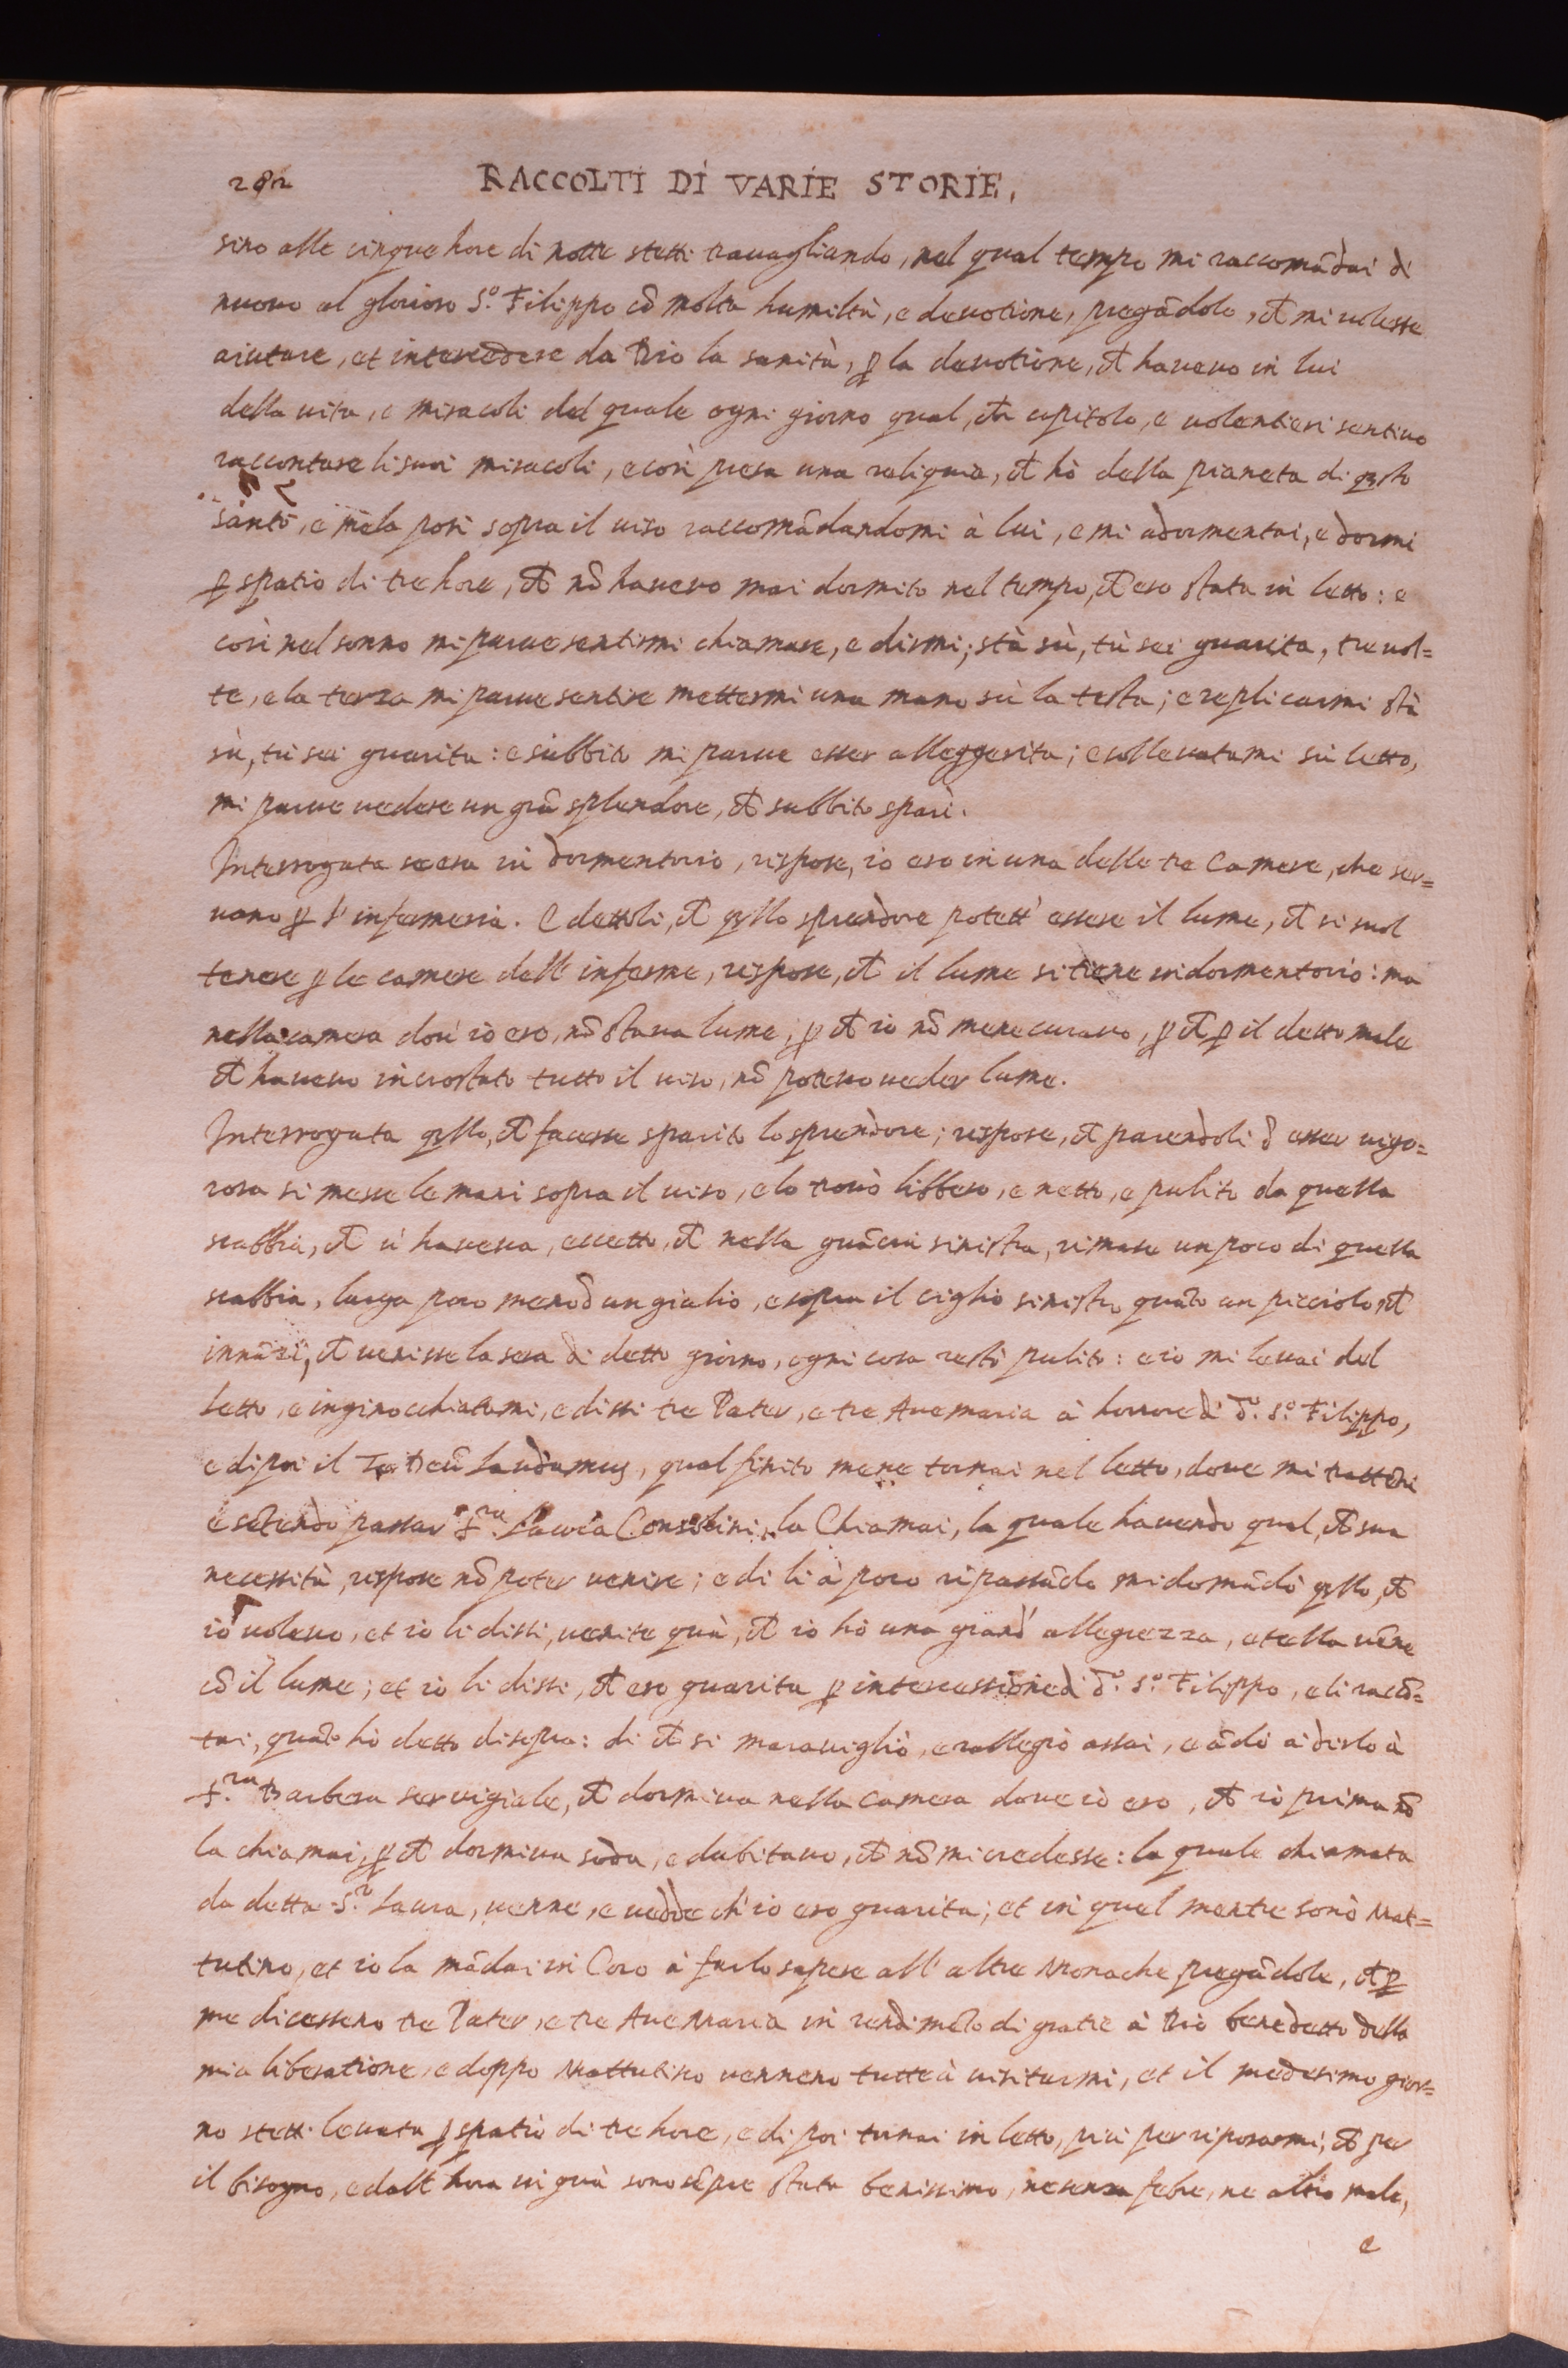 282 RACCOLTI DI VARIE STORIE,
sino alle cinque hore di notte stetti trauagliando, nel qual tempo mi raccomādai di
nuouo al glorioso S.º Filippo cō molta humiltà, e deuotione, pregādolo, ch̄ mi uolesse
aiutare, et intercedere da Dio la sanità, ꝑ la deuotione, ch̄ haueuo in lui
della uita, e miracoli del quale ogni giorno qual, ch̄ capitolo, e uolentieri sentiuo
raccontare li suoi miracoli, e così presa una reliquia, ch̄ hò della pianeta di qsto
santo, e me la posi sopra il uiso raccomādandomi à lui, e mi adormentai, e dormi
ꝑ spatio di tre hore, ch̄ nō haueuo mai dormito nel tempo, ch̄ ero stata in letto: e
così nel sonno mi parue sentirmi chiamare, e dirmi; stà sù, tù sei guarita, tre uol=
te, e la terza mi parue sentire mettermi una mano sù la testa; e replicarmi stà
sù, tù sei guarita: e subbito mi parue esser alleggerita; e solleuatami sù letto,
mi parue uedere un grā splendore, ch̄ subbito sparì.
Interrogata se era in dormentorio, rispose, io ero in una delle tre Camere, che ser=
uano ꝑ l'infermeria. E dettoli, ch̄ qllo sprendore potett' essere il lume, ch̄ si suol
tenere ꝑ le camere dell' inferme, rispose, ch̄ il lume si tiene in dormentorio: ma
nella camera dou' io ero, nō staua lume, ꝑ ch̄ io nō mene curauo, ꝑ ch̄ ꝑ il detto male
ch̄ haueuo incrostato tutto il uiso, nō poteuo ueder lume.
Interrogata qllo, ch̄ facesse sparito lo sprendore; rispose, ch̄ parendoli d' esser uigo=
rosa si messe le mani sopra il uiso, e lo trouò libbero, e netto, e pulito da quella
scabbia, ch̄ u' haueua, eccetto, ch̄ nella guācia sinistra, rimase un poco di quella
scabbia, larga poco meno d' un giulio, e sopra il ciglio sinistro quāto un picciolo, ch̄
innāzi, ch̄ uenisse la sera di detto giorno, ogni cosa restò pulito: e io mi leuai del
letto, e inginocchiatomi, e dissi tre Pater, e tre Auemaria à honore di d.º S.º Filippo,
e di poi il Te Deū laudamus, qual finito mene tornai nel letto, doue mi trattēni
e sētendo passar S.ra Laura Consolini, la Chiamai, la quale hauendo qual, ch̄ sua
necessità, rispose nō poter uenire; e di lì à poco ripassādo mi domādò qllo, ch̄
io uoleuo, et io li dissi, uenite quà, ch̄ io hò una grand' allegrezza, et ella uēne
cō il lume; et io li dissi, ch̄ ero guarita ꝑ intercessione di d.º S.º Filippo, e li raccō=
tai, quāto hò detto di sopra: di ch̄ si marauigliò, e rallegrò assai, e ādò a dirlo à
S.ra Barbera seruigiale, ch̄ dormiua nella camera doue io ero, ch̄ io prima nō
la chiamai, ꝑ ch̄ dormiua soda, e dubitauo, ch̄ nō mi credesse: la quale chiamata
da detta S.r Laura, uenne, e uedde ch' io ero guarita; et in quel mentre sonò Mat=
tutino, et io la mādai in Coro à farlo sapere all' altre Monache pregādole, ch̄ ꝑ
me dicessero tre Pater, e tre Aue Maria in rendimēto di gratie à Dio benedetto della
mia liberatione, e doppo Mattutino uennero tutte à uisitarmi, et il medesimo gior=
no stetti leuata ꝑ spatio di tre hore, e di poi tornai in letto, più per riposarmi, ch̄ per
il bisogno, e dall' hora in quà sono sēpre stata benissimo, ne senza febre, ne altro male,
e